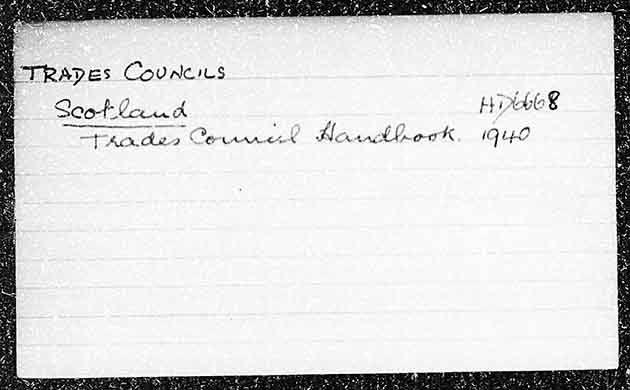 TRADES COUNCILS
Scotland HD6668
Trades Council Handbook. 1940